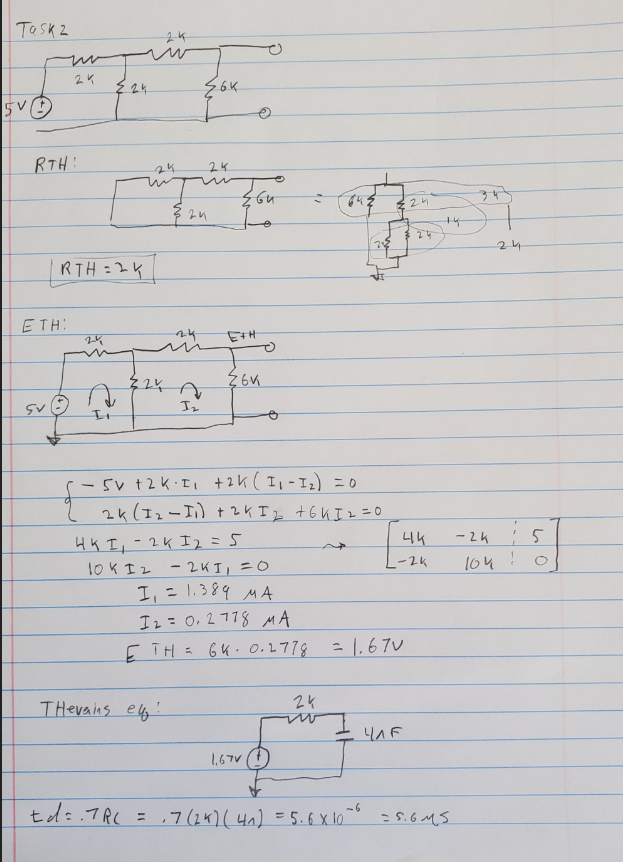 Task 2
2k
2k
2k
6k
5V
RTH:
2k 2k
2k
6k
=
6k 2k 3k
1k
2k 2k
2k
RTH = 2k
ETH:
2k 2k ETH
2k
6k
5V
I1 I2
- 5V + 2k · I1 + 2k ( I1 - I2 ) = 0
2k ( I2 - I1 ) + 2k I2 + 6k I2 = 0
4k I1 - 2k I2 = 5
4k -2k 5
10k I2 - 2k I1 = 0
-2k 10k 0
I1 = 1.389 MA
I2 = 0.2778 MA
E TH = 6k · 0.2778 = 1.67V
THevains eq:
2k
4nF
1.67V
td = .7RC = .7(2k)(4n) = 5.6 x 10^-6 = 5.6 MS